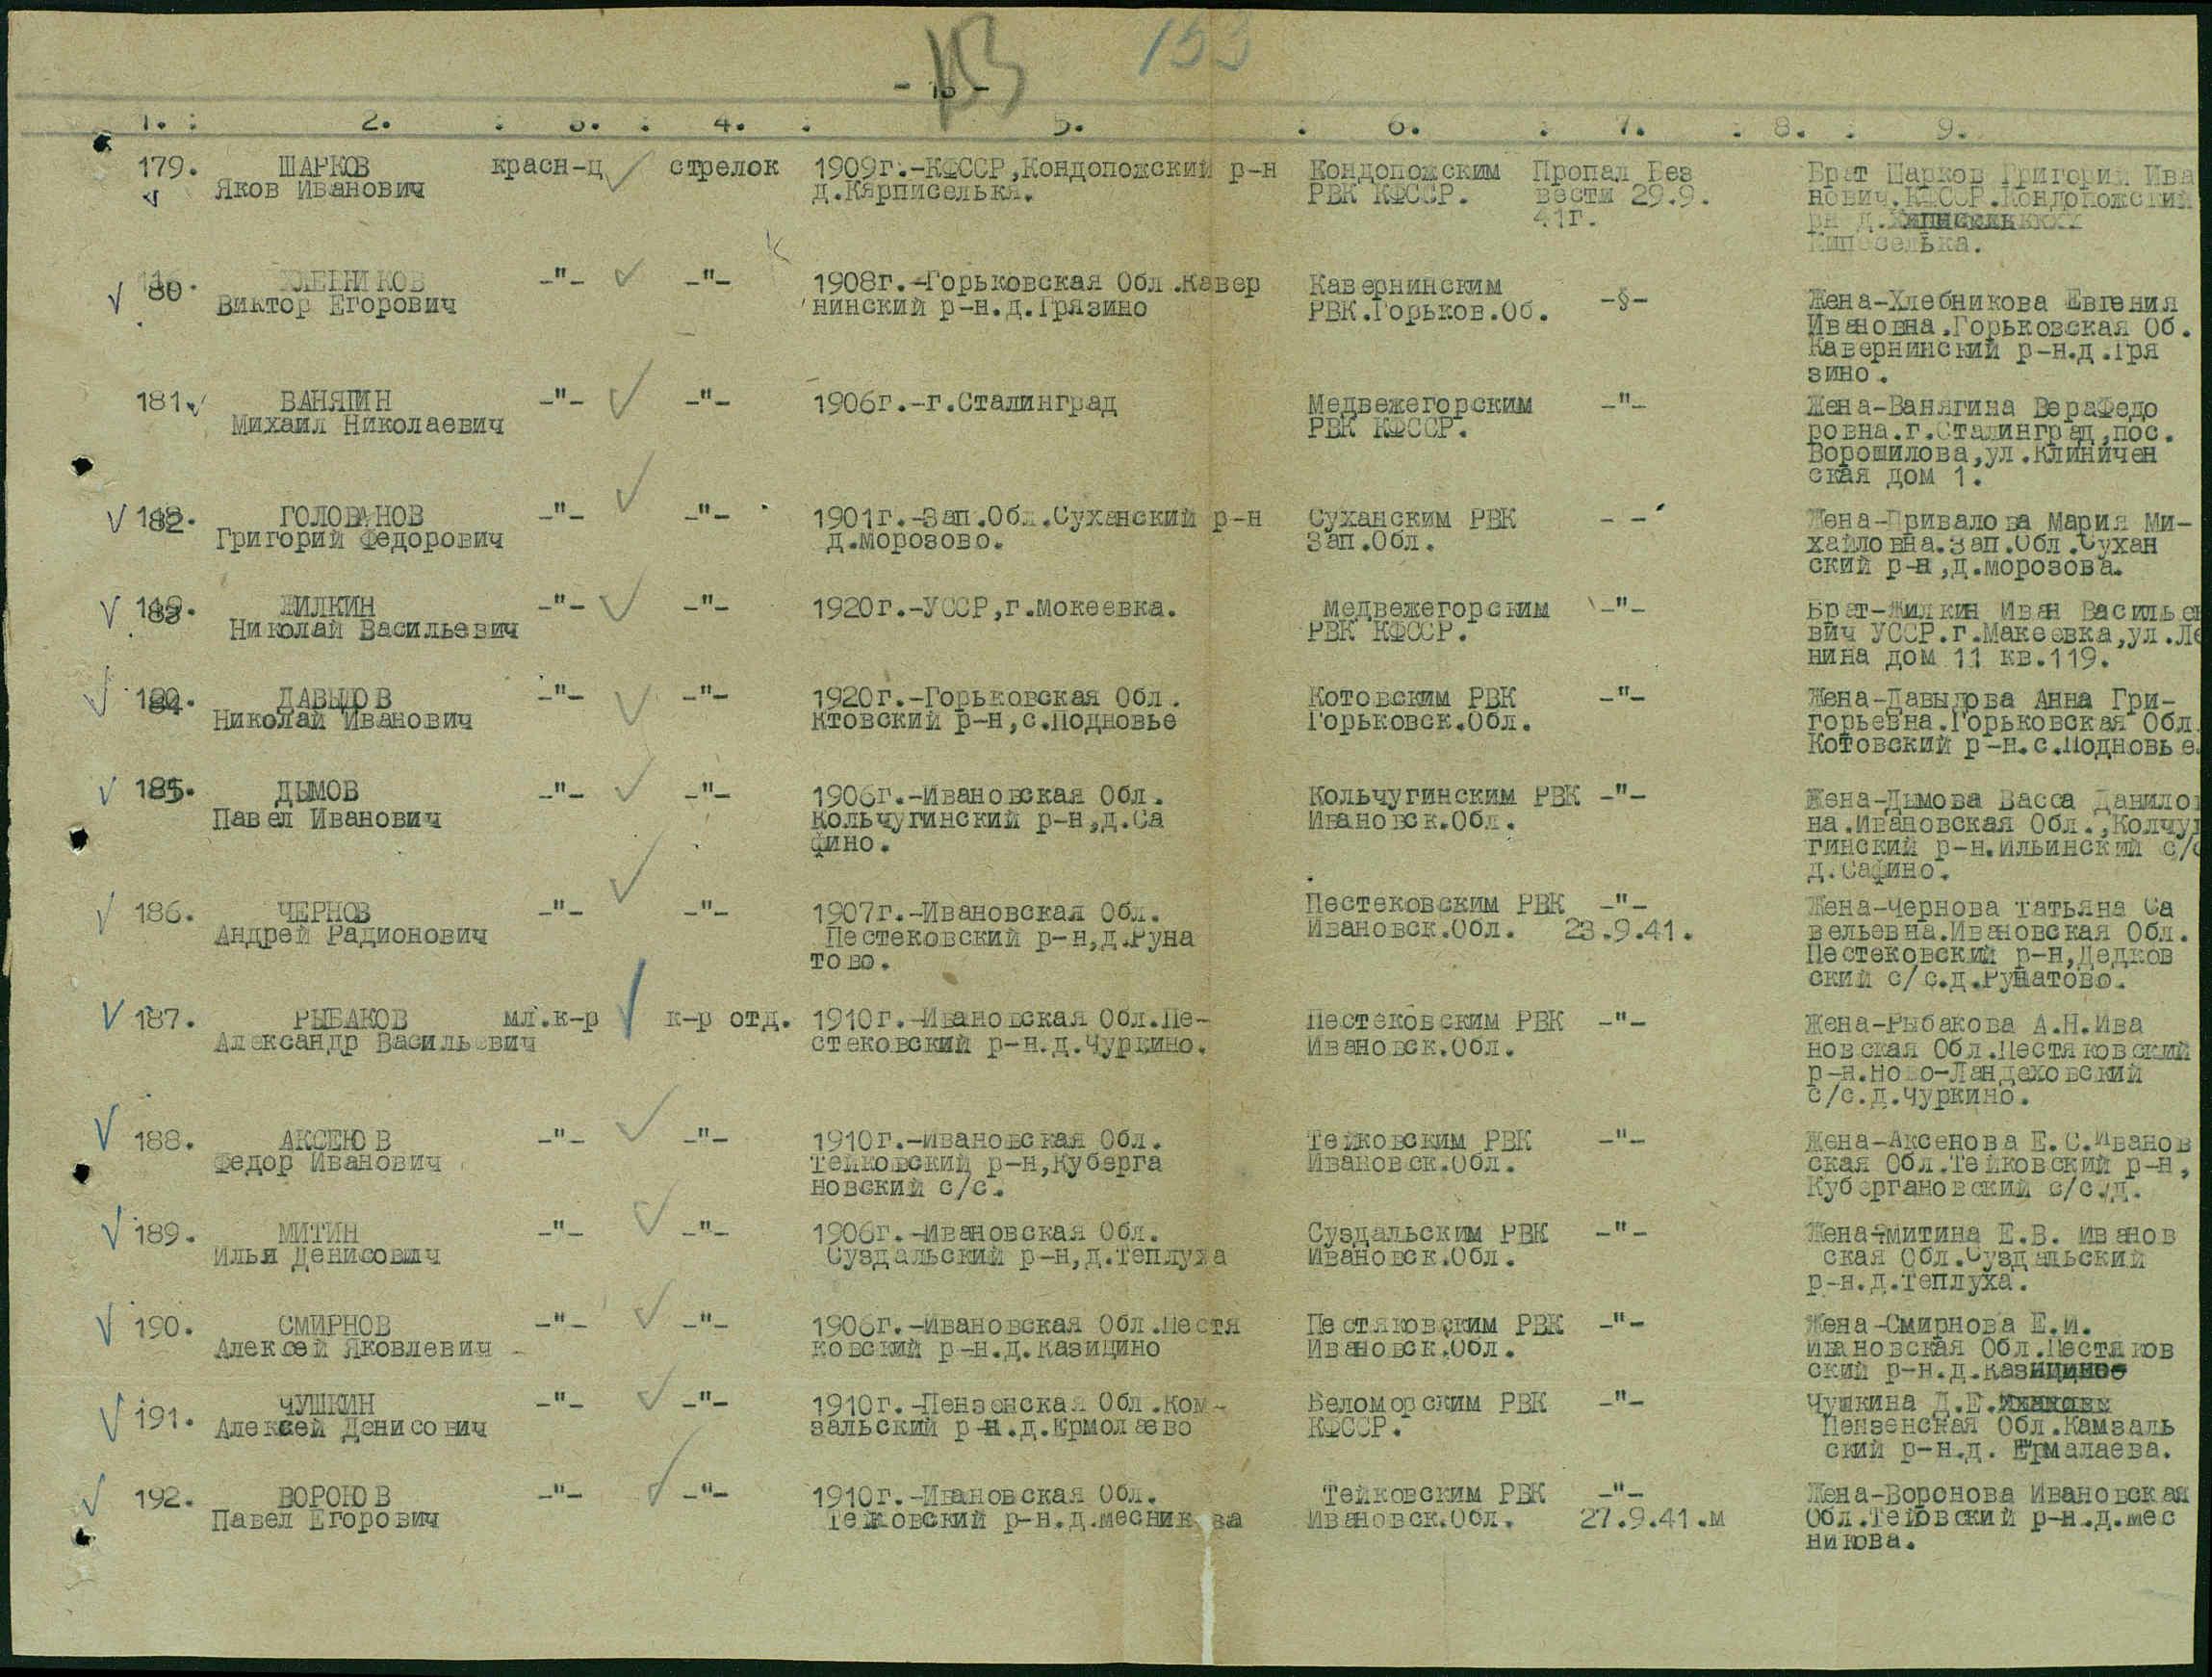 153
- 15 -
1. : 2. : 3. : 4. : 5. : 6. : 7. : 8. : 9.
179. ШАРКОВ красн-ц стрелок 1909г.-КФССР,Кондопожский р-н Кондопожским Пропал Без Брат Шарков Григорий Ива
Яков Иванович д.Кярписелькя. РВК КФССР. вести 29.9. нович.КФССР.Кондопожский
41г. рн д.
селька.
80 ХЛЕБНИКОВ -"- -"- 1908г.-Горьковская Обл.Кавер Кавернинским -§- Жена-Хлебникова Евгения
Виктор Егорович нинский р-н.д.Грязино РВК.Горьков.Об. Ивановна.Горьковская Об.
Кавернинский р-н.д.Гря
зино.
181. ВАНЯГИН -"- -"- 1906г.-г.Сталинград Медвежегорским -"- Жена-Ванягина ВераФедо
Михаил Николаевич РВК КФССР. ровна.г.Сталинград,пос.
Ворошилова,ул.Клиничен
ская дом 1.
182. ГОЛОВАНОВ -"- -"- 1901г.-Зап.Обл.Суханский р-н Суханским РВК - - Жена-Привалова Мария Ми-
Григорий Федорович д.Морозово. Зап.Обл. хайловна.Зап.Обл.Сухан
ский р-н,д.Морозова.
183. ЖИЛКИН -"- -"- 1920г.-УССР,г.Мокеевка. Медвежегорским -"- Брат-Жилкин Иван Васильев
Николай Васильевич РВК КФССР. вич УССР.г.Макеевка,ул.Ле
нина дом 11 кв.119.
184. ДАВЫДОВ -"- -"- 1920г.-Горьковская Обл. Котовским РВК -"- Жена-Давыдова Анна Гри-
Николай Иванович Ктовский р-н,с.Подновье Горьковск.Обл. горьевна.Горьковская Обл.
Котовский р-н.с.Подновье.
185. ДЫМОВ -"- -"- 1906г.-Ивановская Обл. Кольчугинским РВК -"- Жена-Дымова Васса Данилов
Павел Иванович Кольчугинский р-н,д.Са Ивановск.Обл. на.Ивановская Обл.,Колчу
фино. гинский р-н.Ильинский с/с
д.Сафино.
186. ЧЕРНОВ -"- -"- 1907г.-Ивановская Обл. Пестековским РВК -"- Жена-Чернова Татьяна Са
Андрей Радионович Пестековский р-н,д.Руна Ивановск.Обл. 23.9.41. вельевна.Ивановская Обл.
тово. Пестековский р-н,Дедков
ский с/с.д.Рунатово.
187. РЫБАКОВ мл.к-р к-р отд. 1910г.-Ивановская Обл.Пе- Пестековским РВК -"- Жена-Рыбакова А.Н.Ива
Александр Васильевич стековский р-н.д.Чуркино. Ивановск.Обл. новская Обл.Пестяковский
р-н.Ново-Ландеховский
с/с.д.Чуркино.
188. АКСЕЮВ -"- -"- 1910г.-Ивановская Обл. Тейковским РВК -"- Жена-Аксенова Е.С.Иванов
Федор Иванович Тейковский р-н,Куберга Ивановск.Обл. ская Обл.Тейковский р-н,
новский с/с. Кубергановский с/с.д.
189. МИТИН -"- -"- 1906г.-Ивановская Обл. Суздальским РВК -"- Жена-Митина Е.В. Иванов
Илья Денисович Суздальский р-н,д.Теплуха Ивановск.Обл. ская Обл.Суздальский
р-н.д.Теплуха.
190. СМИРНОВ -"- -"- 1906г.-Ивановская Обл.Пестя Пестяковским РВК -"- Жена-Смирнова Е.И.
Алексей Яковлевич ковский р-н.д.Казицино Ивановск.Обл. Ивановская Обл.Пестяков
ский р-н.д.Казицино
191. ЧУШКИН -"- -"- 1910г.-Пензенская Обл.Ком- Беломорским РВК -"- Чушкина Д.Е.
Алексей Денисович зальский р-н.д.Ермолаево КФССР. Пензенская Обл.Камзаль
ский р-н.д. Ермалаева.
192. ВОРОЮВ -"- -"- 1910г.-Ивановская Обл. Тейковским РВК -"- Жена-Воронова Ивановская
Павел Егорович Тейковский р-н.д.Месник ва Ивановск.Обл. 27.9.41.м Обл.Тейовский р-н.д.Мес
никова.